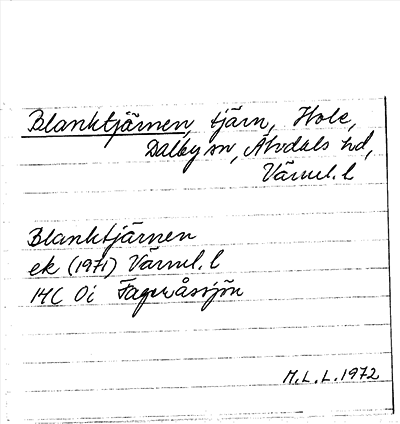 Blanktjärnen, tjärn, Hole,
Dalby sn, Älvdals hd,
Värml. l
Blanktjärnen
ek (1971) Värml. l
17C 0i Fageråssjön
M. L. L. 1972